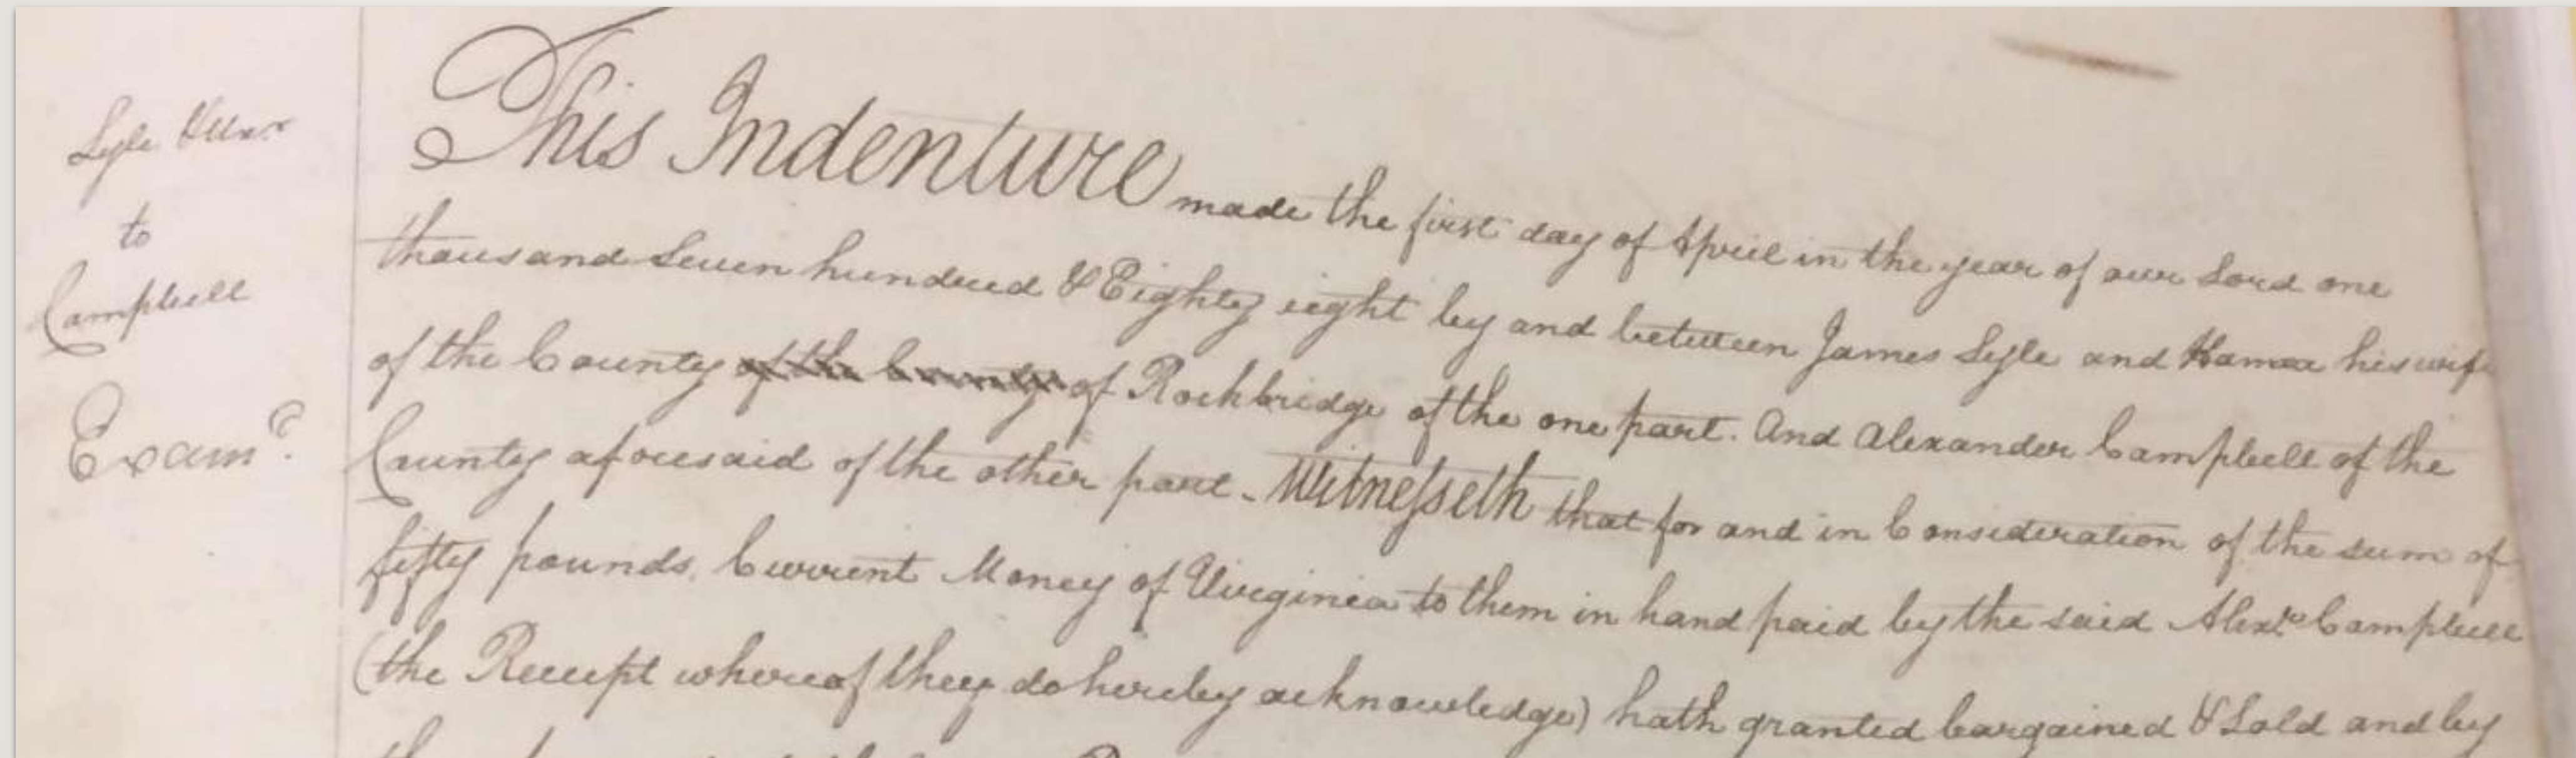 Lyle & uxr
to
Campbell
Examd.
This Indenture made the first day of April in the year of our Lord one
thousand Seven hundred & Eighty eight by and between James Lyle and his wife
of the County of the County of Rockbridge of the one part. And Alexander Campbell of the
County aforesaid of the other part. Witnesseth that for and in Consideration of the sum of
fifty pounds Current Money of Virginia to them in hand paid by the said Alexr. Campbell
(the Receipt whereof they do hereby acknowledge) hath granted bargained & Sold and by